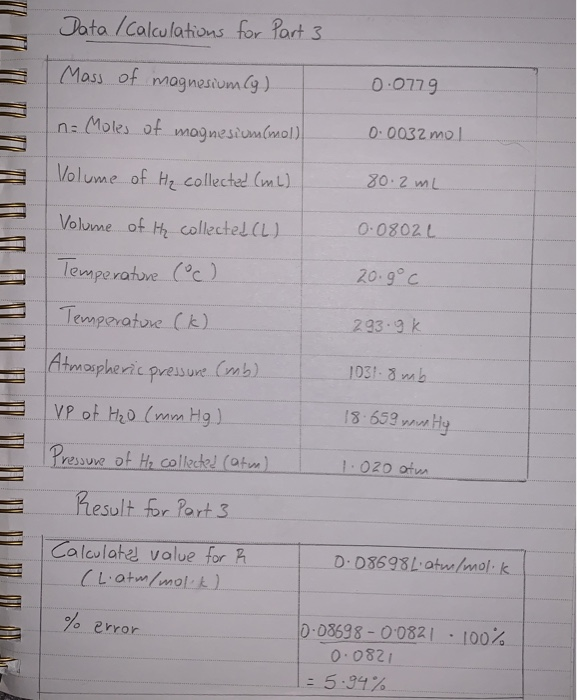 Data/Calculations for Part 3
Mass of magnesium(g) 0.0779
n= Moles of magnesium(mol) 0.0032mol
Volume of H₂ collected (mL) 80.2 mL
Volume of H₂ collected (L) 0.0802L
Temperature (°c) 20.9°C
Temperature (k) 293.9 k
Atmospheric pressure (mb) 1031.8mb
VP of H₂O (mm Hg) 18.659 mmHg
Pressure of H₂ collected (atm) 1.020 atm
Result for Part 3
Calculated value for R 0.08698L.atm/mol.k
(L.atm/mol.k)
% error 0.08698-0.0821 · 100%
0.0821
= 5.94%